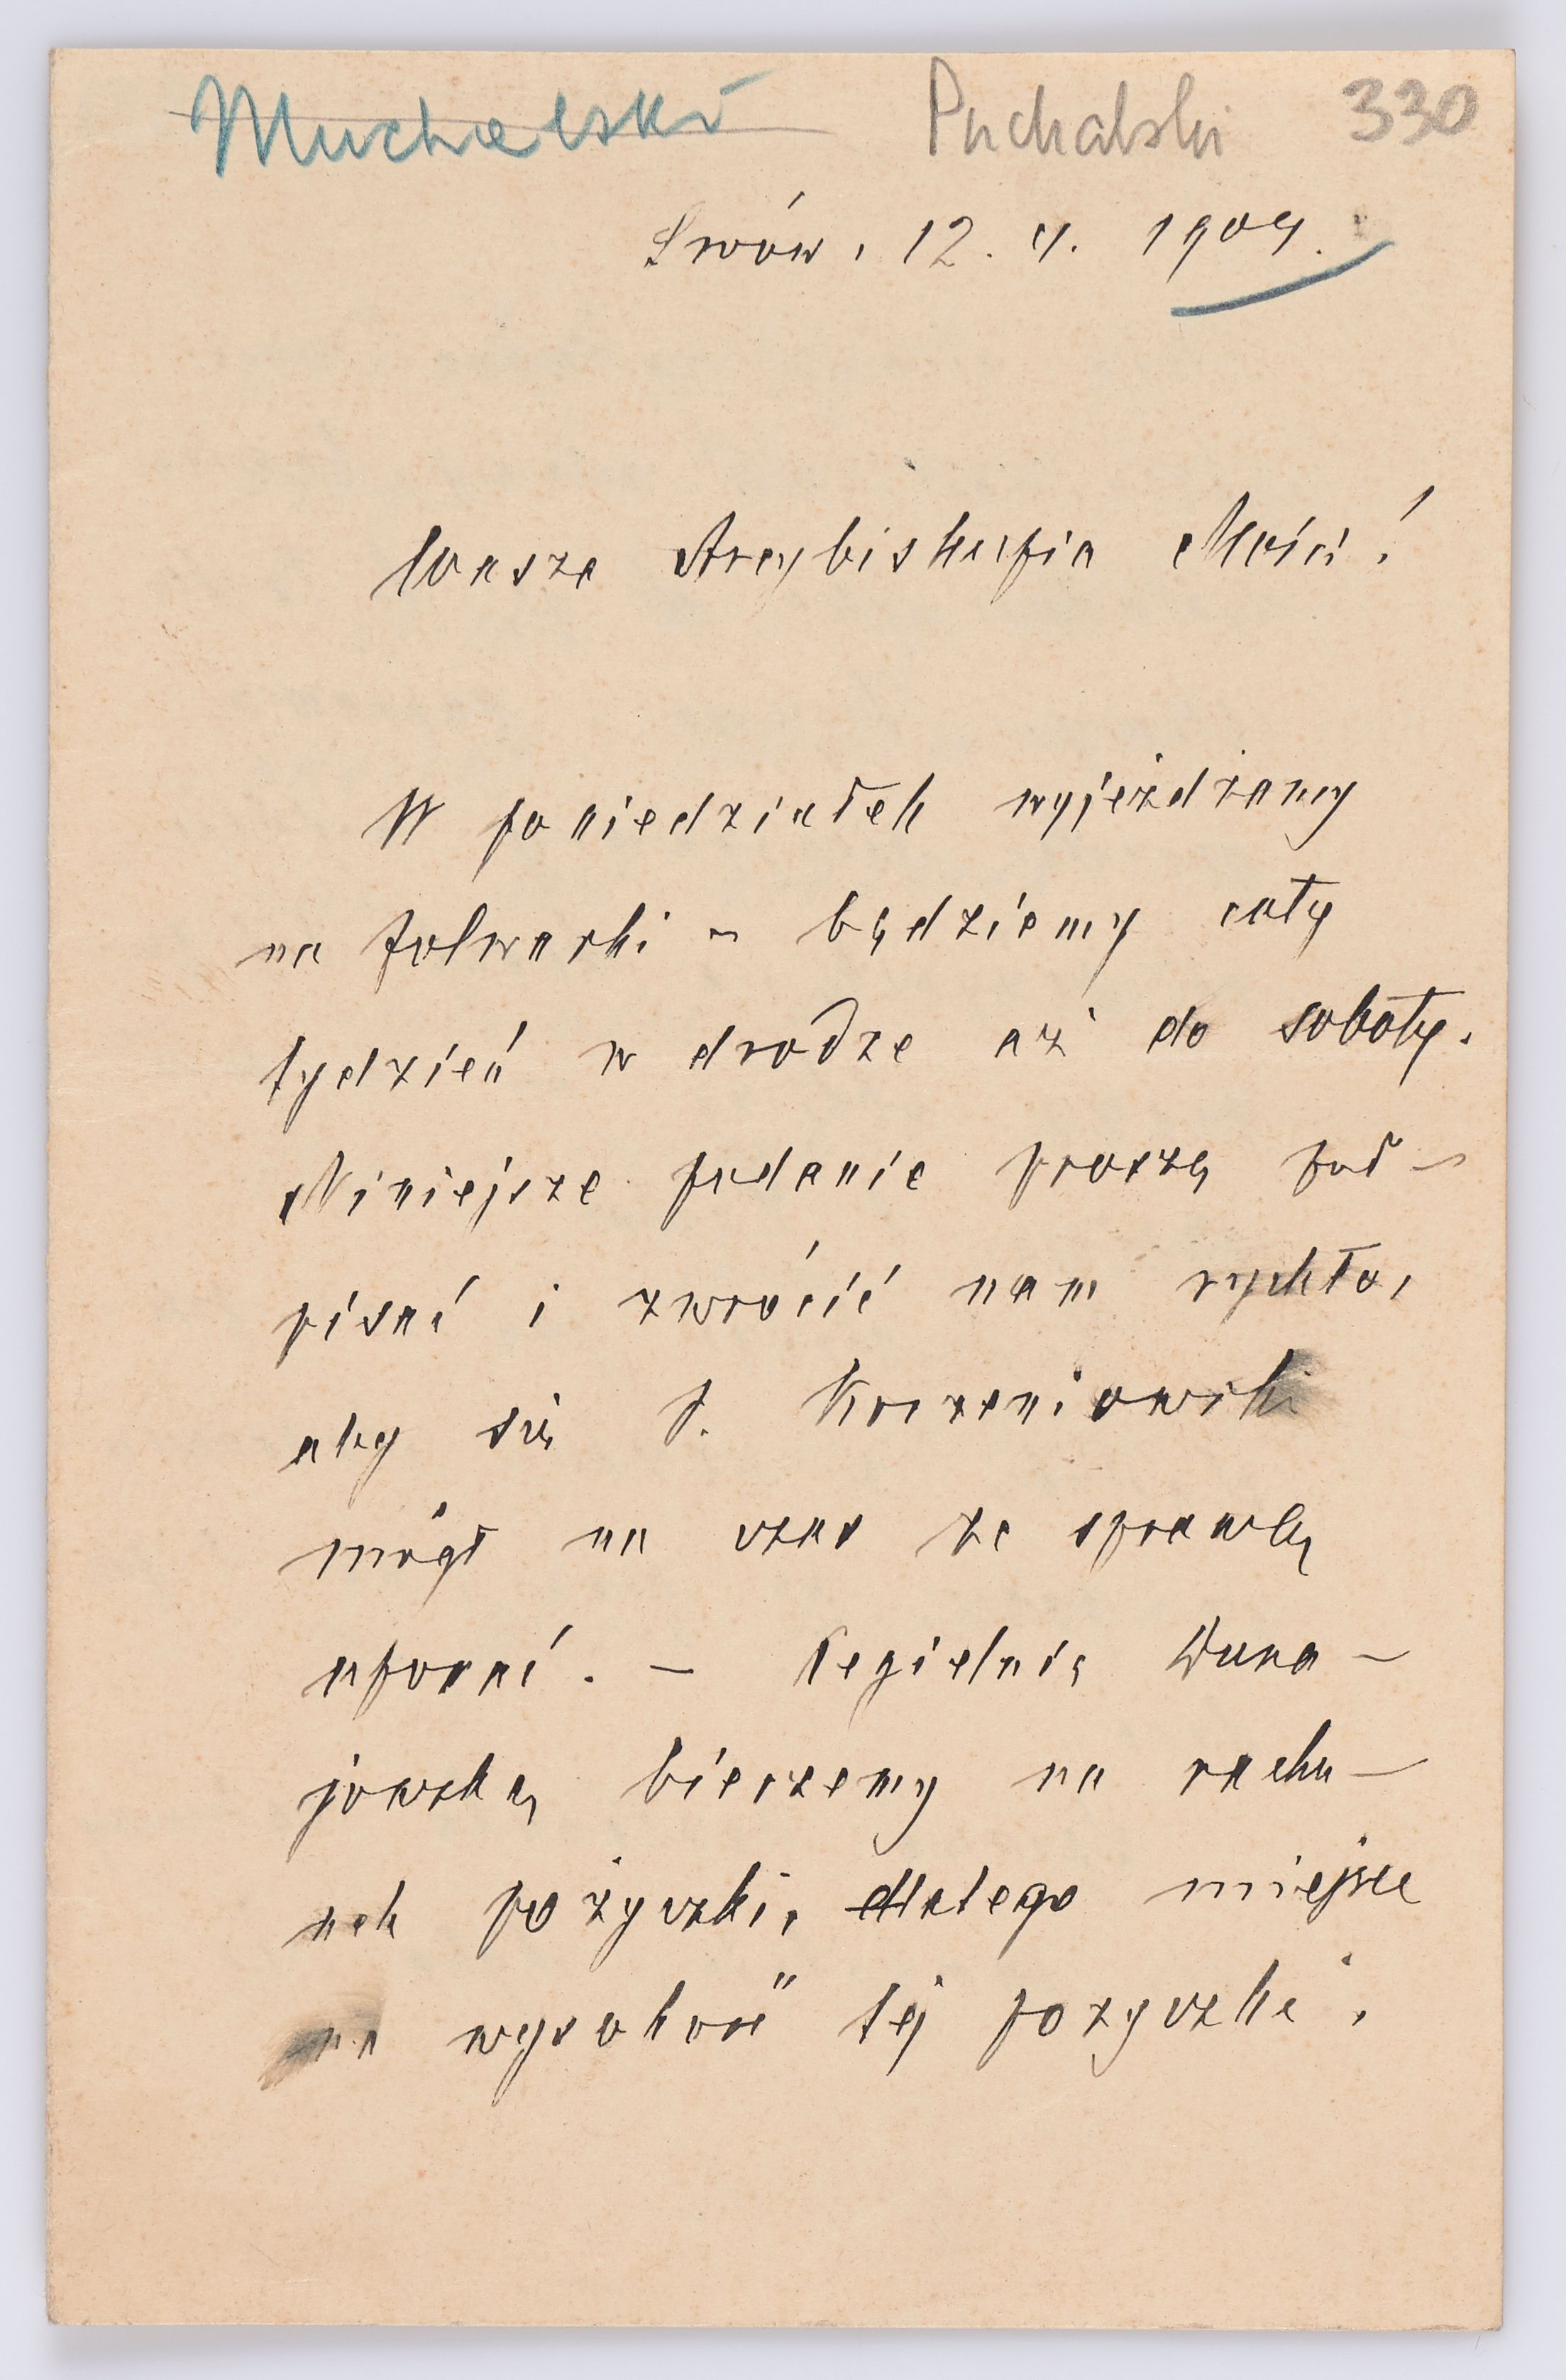 Muchalski Puchalski 330
Lwów, 12. 4. 1904.
Wasza Arcybiskupia Mości!
W poniedziałek wyjeżdżamy
na folwarki – będziemy cały
tydzień w drodze aż do soboty.
Niniejsze podanie proszę pod-
pisać i zwrócić nam rychło,
aby się P. Korzeniowski
mógł na czas ze sprawą
uporać. – Cegielnię Duna-
jowską bierzemy na rachu-
nek pożyczki, dlatego miejsce
na wysokość tej pożyczki,